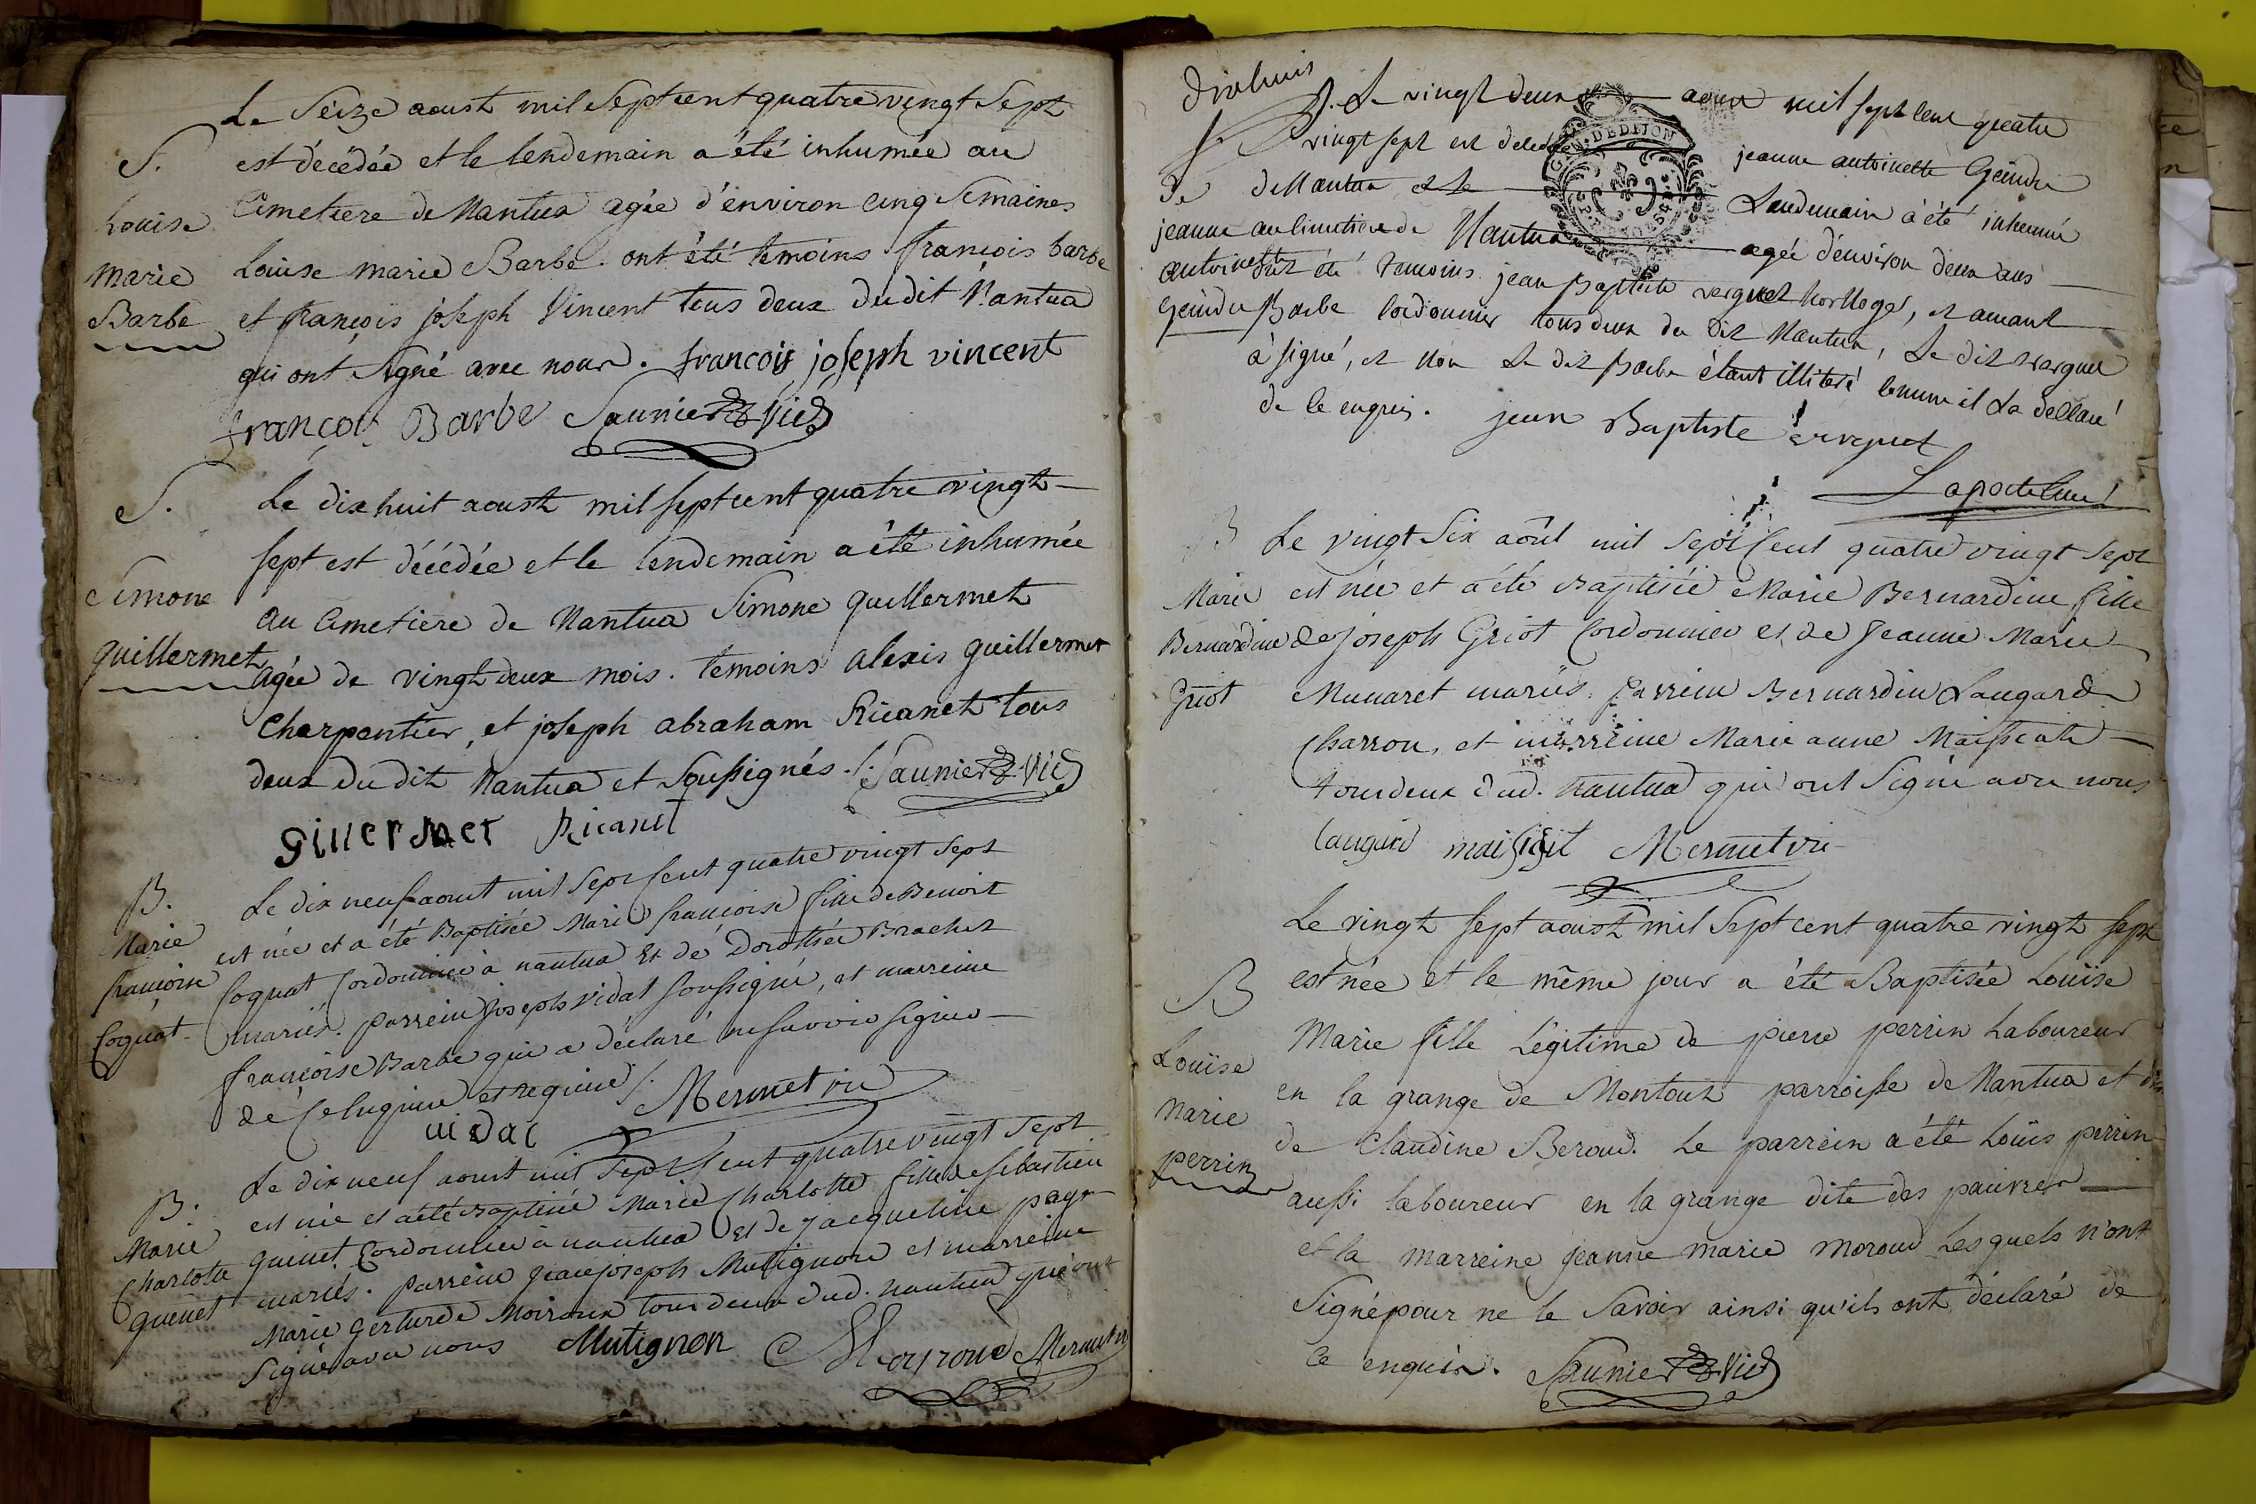 Le Seize aoust mil Sept cent quatre vingt Sept
S. est décédée et le lendemain a été inhumée au
Louise Cimetiere de Nantua agée d'environ cinq Semaines
Marie Louise marie Barbe. ont été temoins francois barbe
Barbe et françois joseph Vincent tous deux dudit Nantua
qui ont signé avec nous. francois joseph vincent
françois Barbe Saunier Vic
S. Le dix huit aoust mil sept cent quatre vingt
sept est décédée et le lendemain a été inhumée
Simone au Cimetiere de Nantua Simone guillermet
guillermet agée de vingt deux mois. temoins alexis guillermet
Charpentier, et joseph abraham Ricanet tous
deux du dit Nantua et soussignés ./. Saunier Vic
gillermet Ricanet
B. Le dix neuf aoust mil sept cent quatre vingt sept
Marie est née et a été Baptisée Marie francoise fille de Benoit
francoise Coquat Cordonnier à nantua Et de Dorothée Brachet
Coquat mariés. parrein Joseph Vidal soussigné, et marreine
francoise Barbe qui a déclaré ne savoir signer
de ce enquise et requise ./. Mermet vic
vidal
B. Le dix neuf aoust mil sept cent quatre vingt sept
Marie est née et a été Baptisée Marie Charlotte fille de sebastien
Charlotte guenet Cordonnier à nantua Et de jacqueline
guenet mariés. parrein jean joseph Mutignon et marreine
Marie gerturde tous deux dud. nantua qui ont
signé avec nous Mutignon Mermet vic
dixhuis
S. Le vingt deux aoust mil sept cent quatre
vingt sept est decedée jeanne antoinette Geindre
de Nantua et le Lendemain a été inhumée
jeanne au cimetiere de Nantua agée d'environ deux ans
antoinette ont été temoins jean Baptiste verguet horloger, et amant
Geindre Barbe Cordonnier tous deux du dit Nantua, Le dit verguet
a signé, et non Le dit Barbe étant illiteré comme il La declaré
de ce enquis. jean Baptiste verguet
B Le vingt Six août mil sept Cent quatre vingt sept
Marie est née et a été Baptisée Marie Bernardine fille
Bernardine de joseph Griot Cordonnier et de Jeanne Marie
Griot Munaret mariés. Parrein Bernardin Laugard
Charron, et marreine Marie anne Maissiat
tous deux dud. nantua qui ont Signé avec nous
Laugard maissiat Mermet vic
Le vingt sept aoust mil Sept cent quatre vingt sept
B est née et le même jour a été Baptisée Louïse
Marie fille Légitime de pierre perrin Laboureur
Louïse en la grange de Montout parroisse de Nantua et
Marie de Claudine Beroud. Le parrein a été Loüis perrin
perrin aussi laboureur en la grange dite des pauvres
et la marreine jeanne marie moroud Lesquels n'ont
Signé pour ne le Savoir ainsi qu'ils ont déclaré de
ce enquis. Saunier Vic